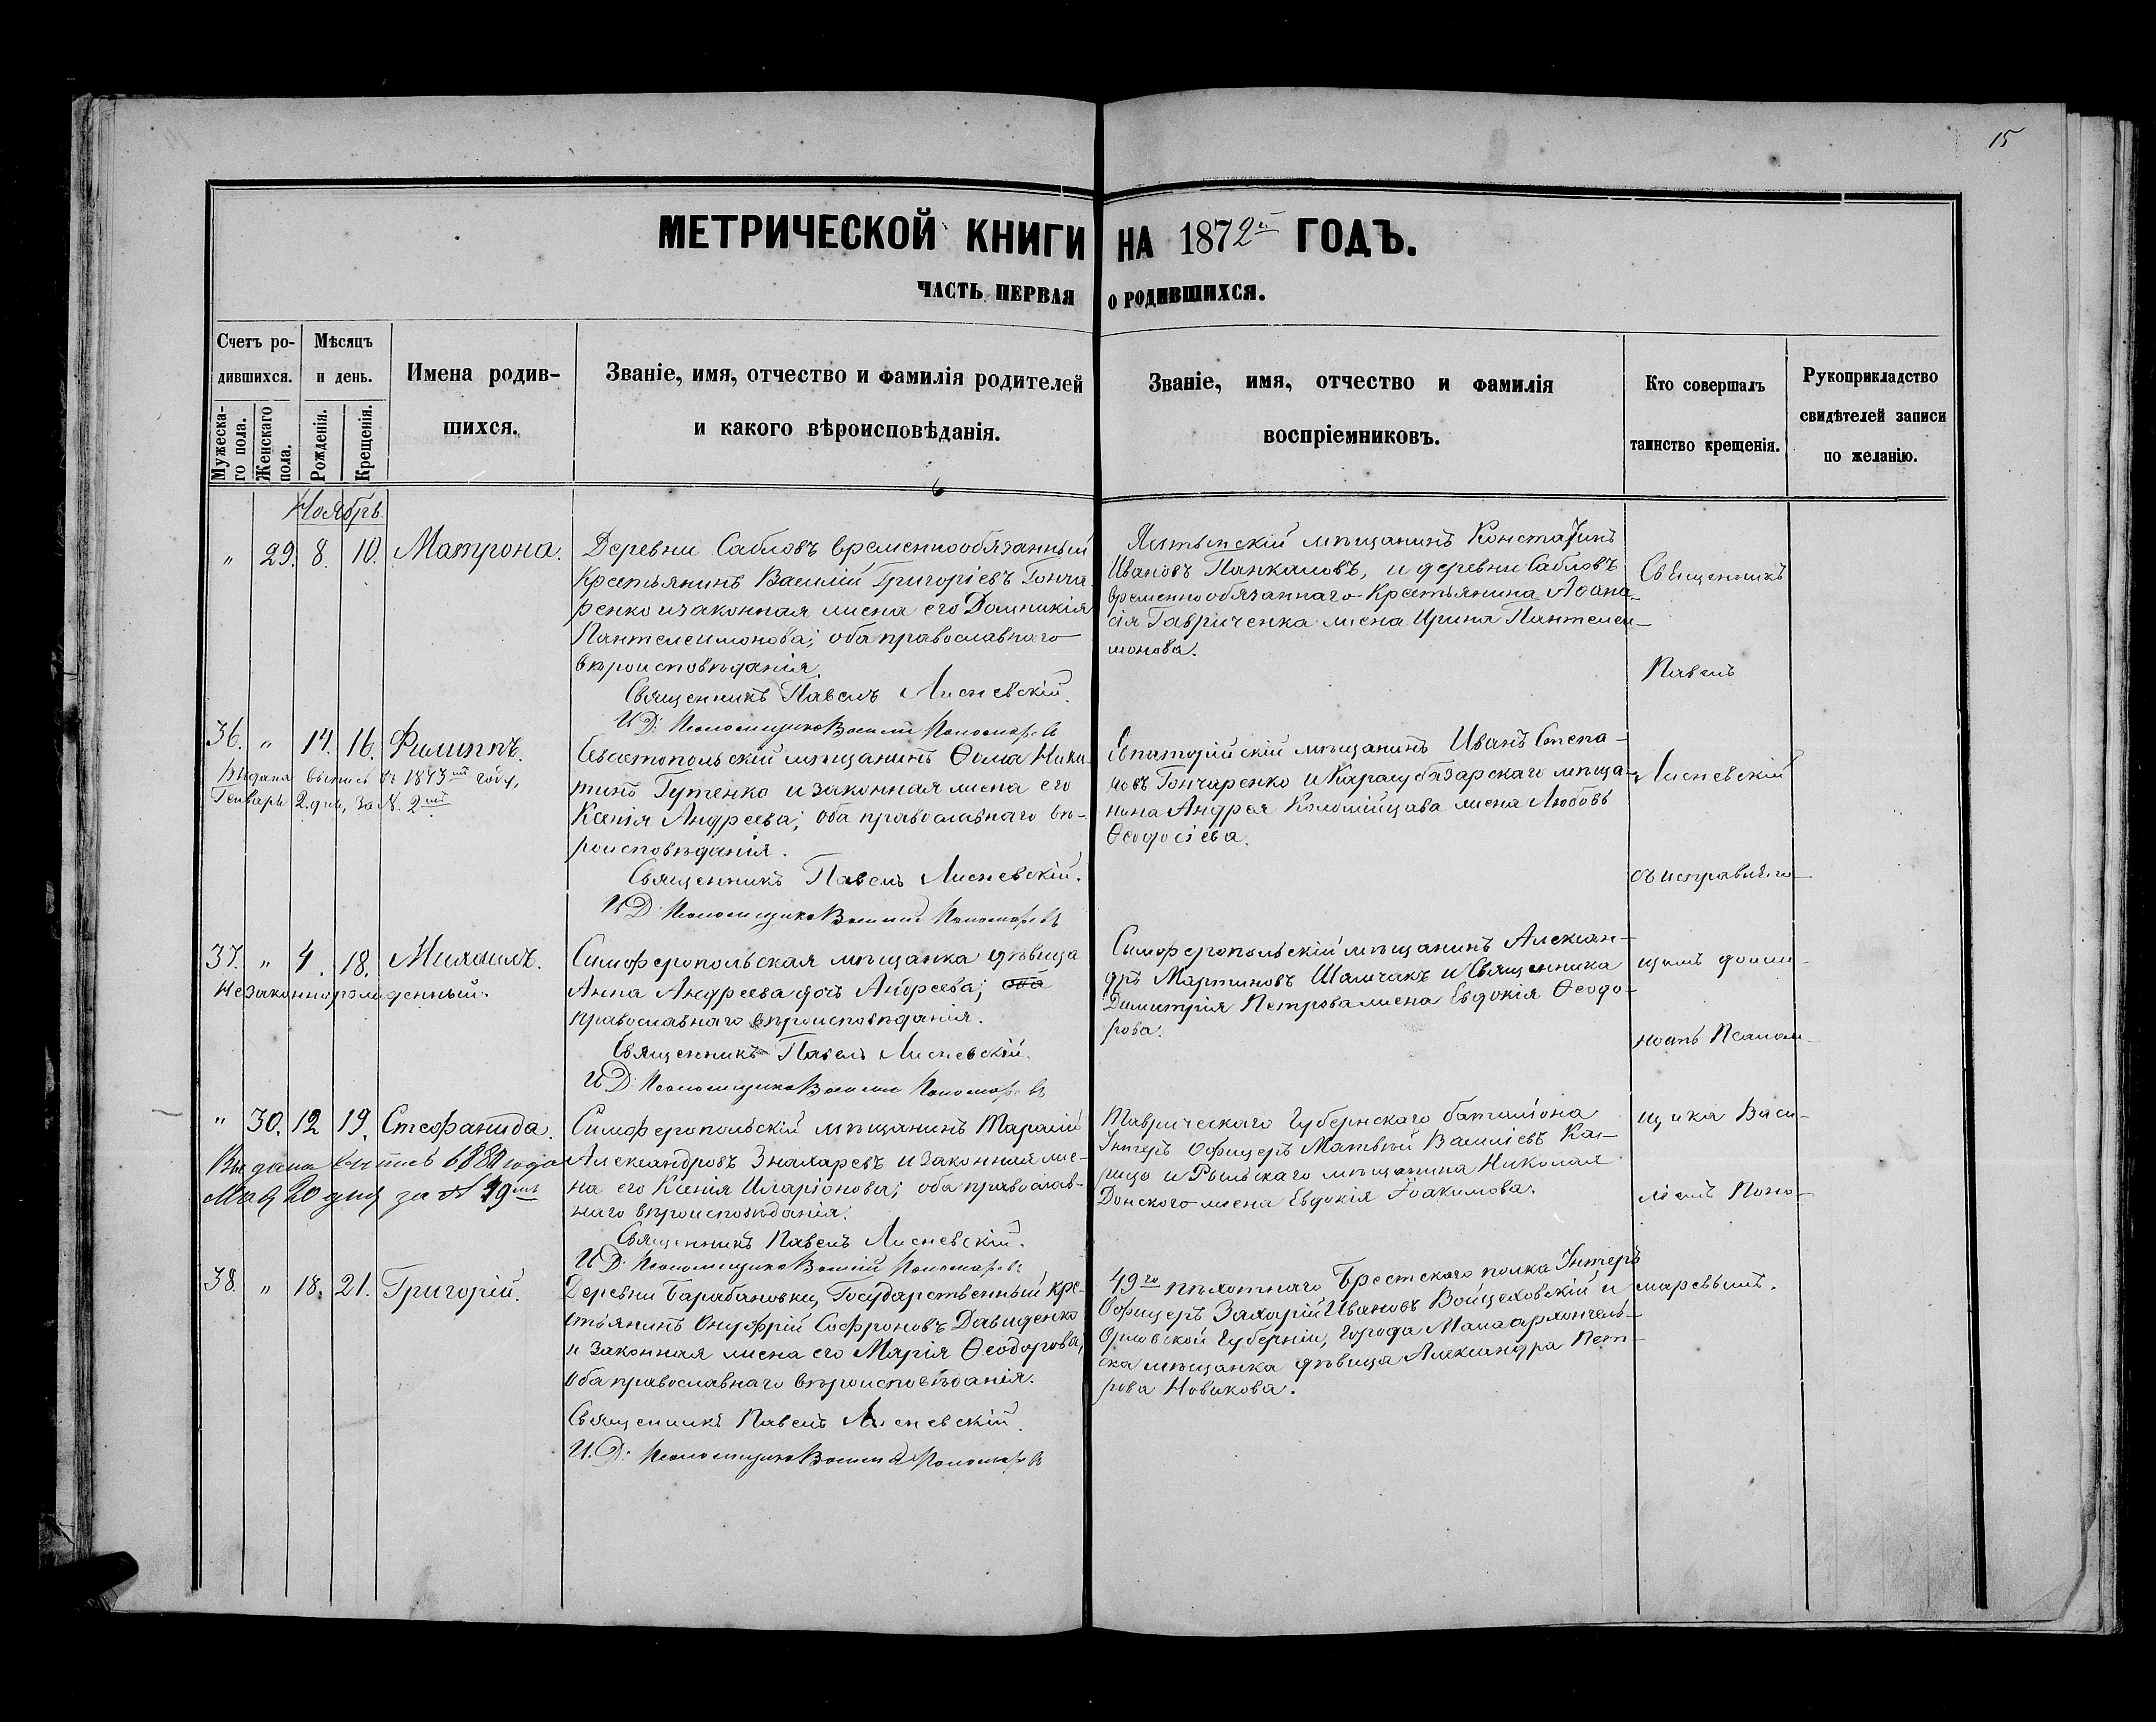 15
МЕТРИЧЕСКОЙ КНИГИ НА 1872й ГОДЪ.
ЧАСТЬ ПЕРВАЯ О РОДИВШИХСЯ.
Счетъ ро-
дившихся.
Мужеска-
го пола.
Женскаго
пола.
Мѣсяцъ
и день.
Рожденія.
Крещенія.
Имена родив-
шихся.
Званіе, имя, отчество и фамилія родителей
и какого вѣроисповѣданія.
Званіе, имя, отчество и фамилія
воспріемниковъ.
Кто совершалъ
таинство крещенія.
Рукоприкладство
свидѣтелей записи
по желанію.
Ноябрь.
" 29. 8. 10. Матрона.
Деревни Сабловъ временнообязанный
Крестьянинъ Василій Григоріевъ Гонча
ренко и законная жена его Домникія
Пантелеимонова; оба православнаго
вѣроисповѣданія.
Священникъ Павелъ Лисневскій.
И.Д. Псаломщика Василій Пономаревъ
Ялтынскій мѣщанинъ Констатинъ
Ивановъ Панкаловъ, и деревни Сабловъ
временнообязаннаго Крестьянина Афана-
сія Гавриченка жена Ирина Пантелеи-
монова.
36. " 14. 16. Филиппъ.
Выдана выпись въ 1873мъ году,
Генваря 2 дня, за N. 2мъ
Севастопольскій мѣщанинъ Ѳома Ники
тинъ Гутенко и законная жена его
Ксенія Андреева; оба православнаго вѣ-
роисповѣданія.
Священникъ Павелъ Лисневскій.
И.Д. Псаломщика Василій Пономаревъ
Евпаторійскій мѣщанинъ Иванъ Степа-
новъ Гончаренко и Карасубазарскаго мѣща-
нина Андрея Коломійцава жена Любовь
Ѳеодосіева.
37. " 4. 18. Михаилъ.
Незаконнорожденный.
Симферопольская мѣщанка дѣвица
Анна Андреева дочь Андреева; оба
православнаго вѣроисповѣданія.
Священникъ Павелъ Лисневскій.
И.Д. Псаломщика Василій Пономаревъ
Симферопольскій мѣщанинъ Алексан-
дръ Мартиновъ Шамчакъ и Священника
Димитрія Петрова жена Евдокія Ѳеодо-
рова.
" 30. 12 19. Стефанида.
Выдана выпись 1888 года
Мая 20 дня за N 19мъ
Симферопольскій мѣщанинъ Тарасій
Александровъ Знахаревъ и законная же-
на его Ксенія Иларіонова; оба православ-
наго вѣроисповѣданія.
Священникъ Павелъ Лисневскій.
И.Д. Псаломщика Василій Пономаревъ
Таврическаго Губернскаго баталіона
Унтеръ Офицеръ Матвѣй Василіевъ Ка-
рицо и Рыльскаго мѣщанина Николая
Донского жена Евдокія Іоакимова.
38. " 18. 21. Григорій.
Деревни Барабановки, Государственный кре-
стьянинъ Онуфрій Софроновъ Давиденко
и законная жена его Марія Ѳеодорова;
оба православнаго вѣроисповѣданія.
Священникъ Павелъ Лисневскій.
И.Д. Псаломщика Василій Пономаревъ
49го пѣхотнаго Брестскаго полка Унтеръ
Офицеръ Захарій Ивановъ Войцеховскій и
Орловской Губерніи, Города Малаархангель-
ска мѣщанка дѣвица Александра Пет-
рова Новикова.
Священникъ
Павелъ
Лисневскій
съ исправляю-
щимъ долж-
ность Псалом-
щика Васи-
ліемъ Поно-
маревымъ.